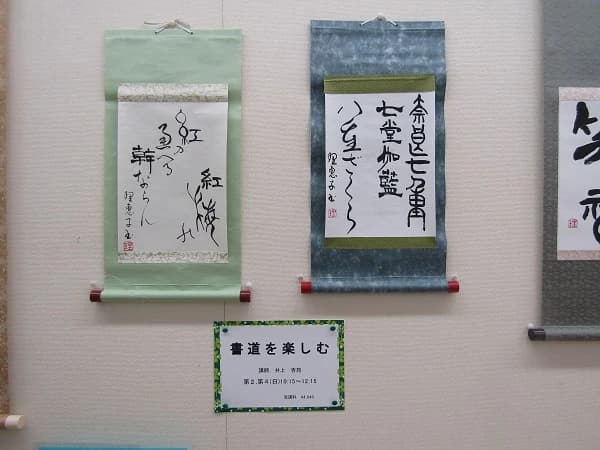 紅梅の
紅の
通へる
幹ならん
理恵子書
奈良七重
七堂伽藍
八重ざくら
理恵子書
書道を楽しむ
講師 井上
第2,第4(日)10:15～12:15
受講料